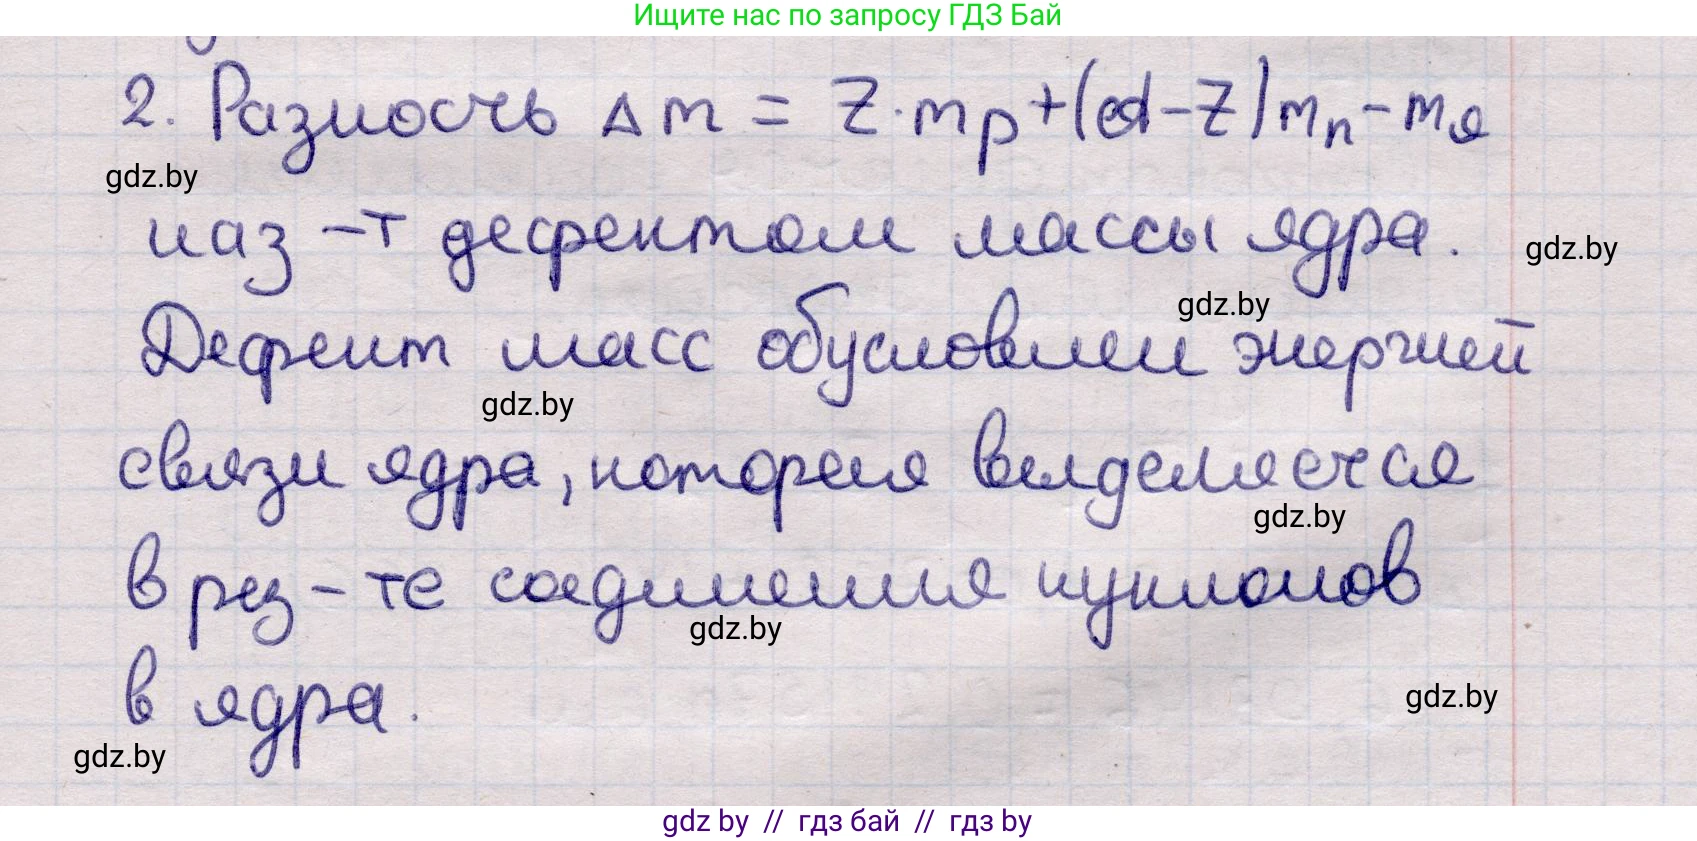 Ищите нас по запросу ГДЗ Бай
2. Разность Δm = Z·mp+(A-Z)mn-mя
gdz.by
наз-т дефектом массы ядра.
gdz.by
gdz.by
Дефект масс обусловлен энергией
gdz.by
связи ядра, которая выделяется
gdz.by
в рез-те соединения нуклонов
gdz.by
gdz.by
в ядра.
gdz.by
gdz by // гдз бай // гдз by